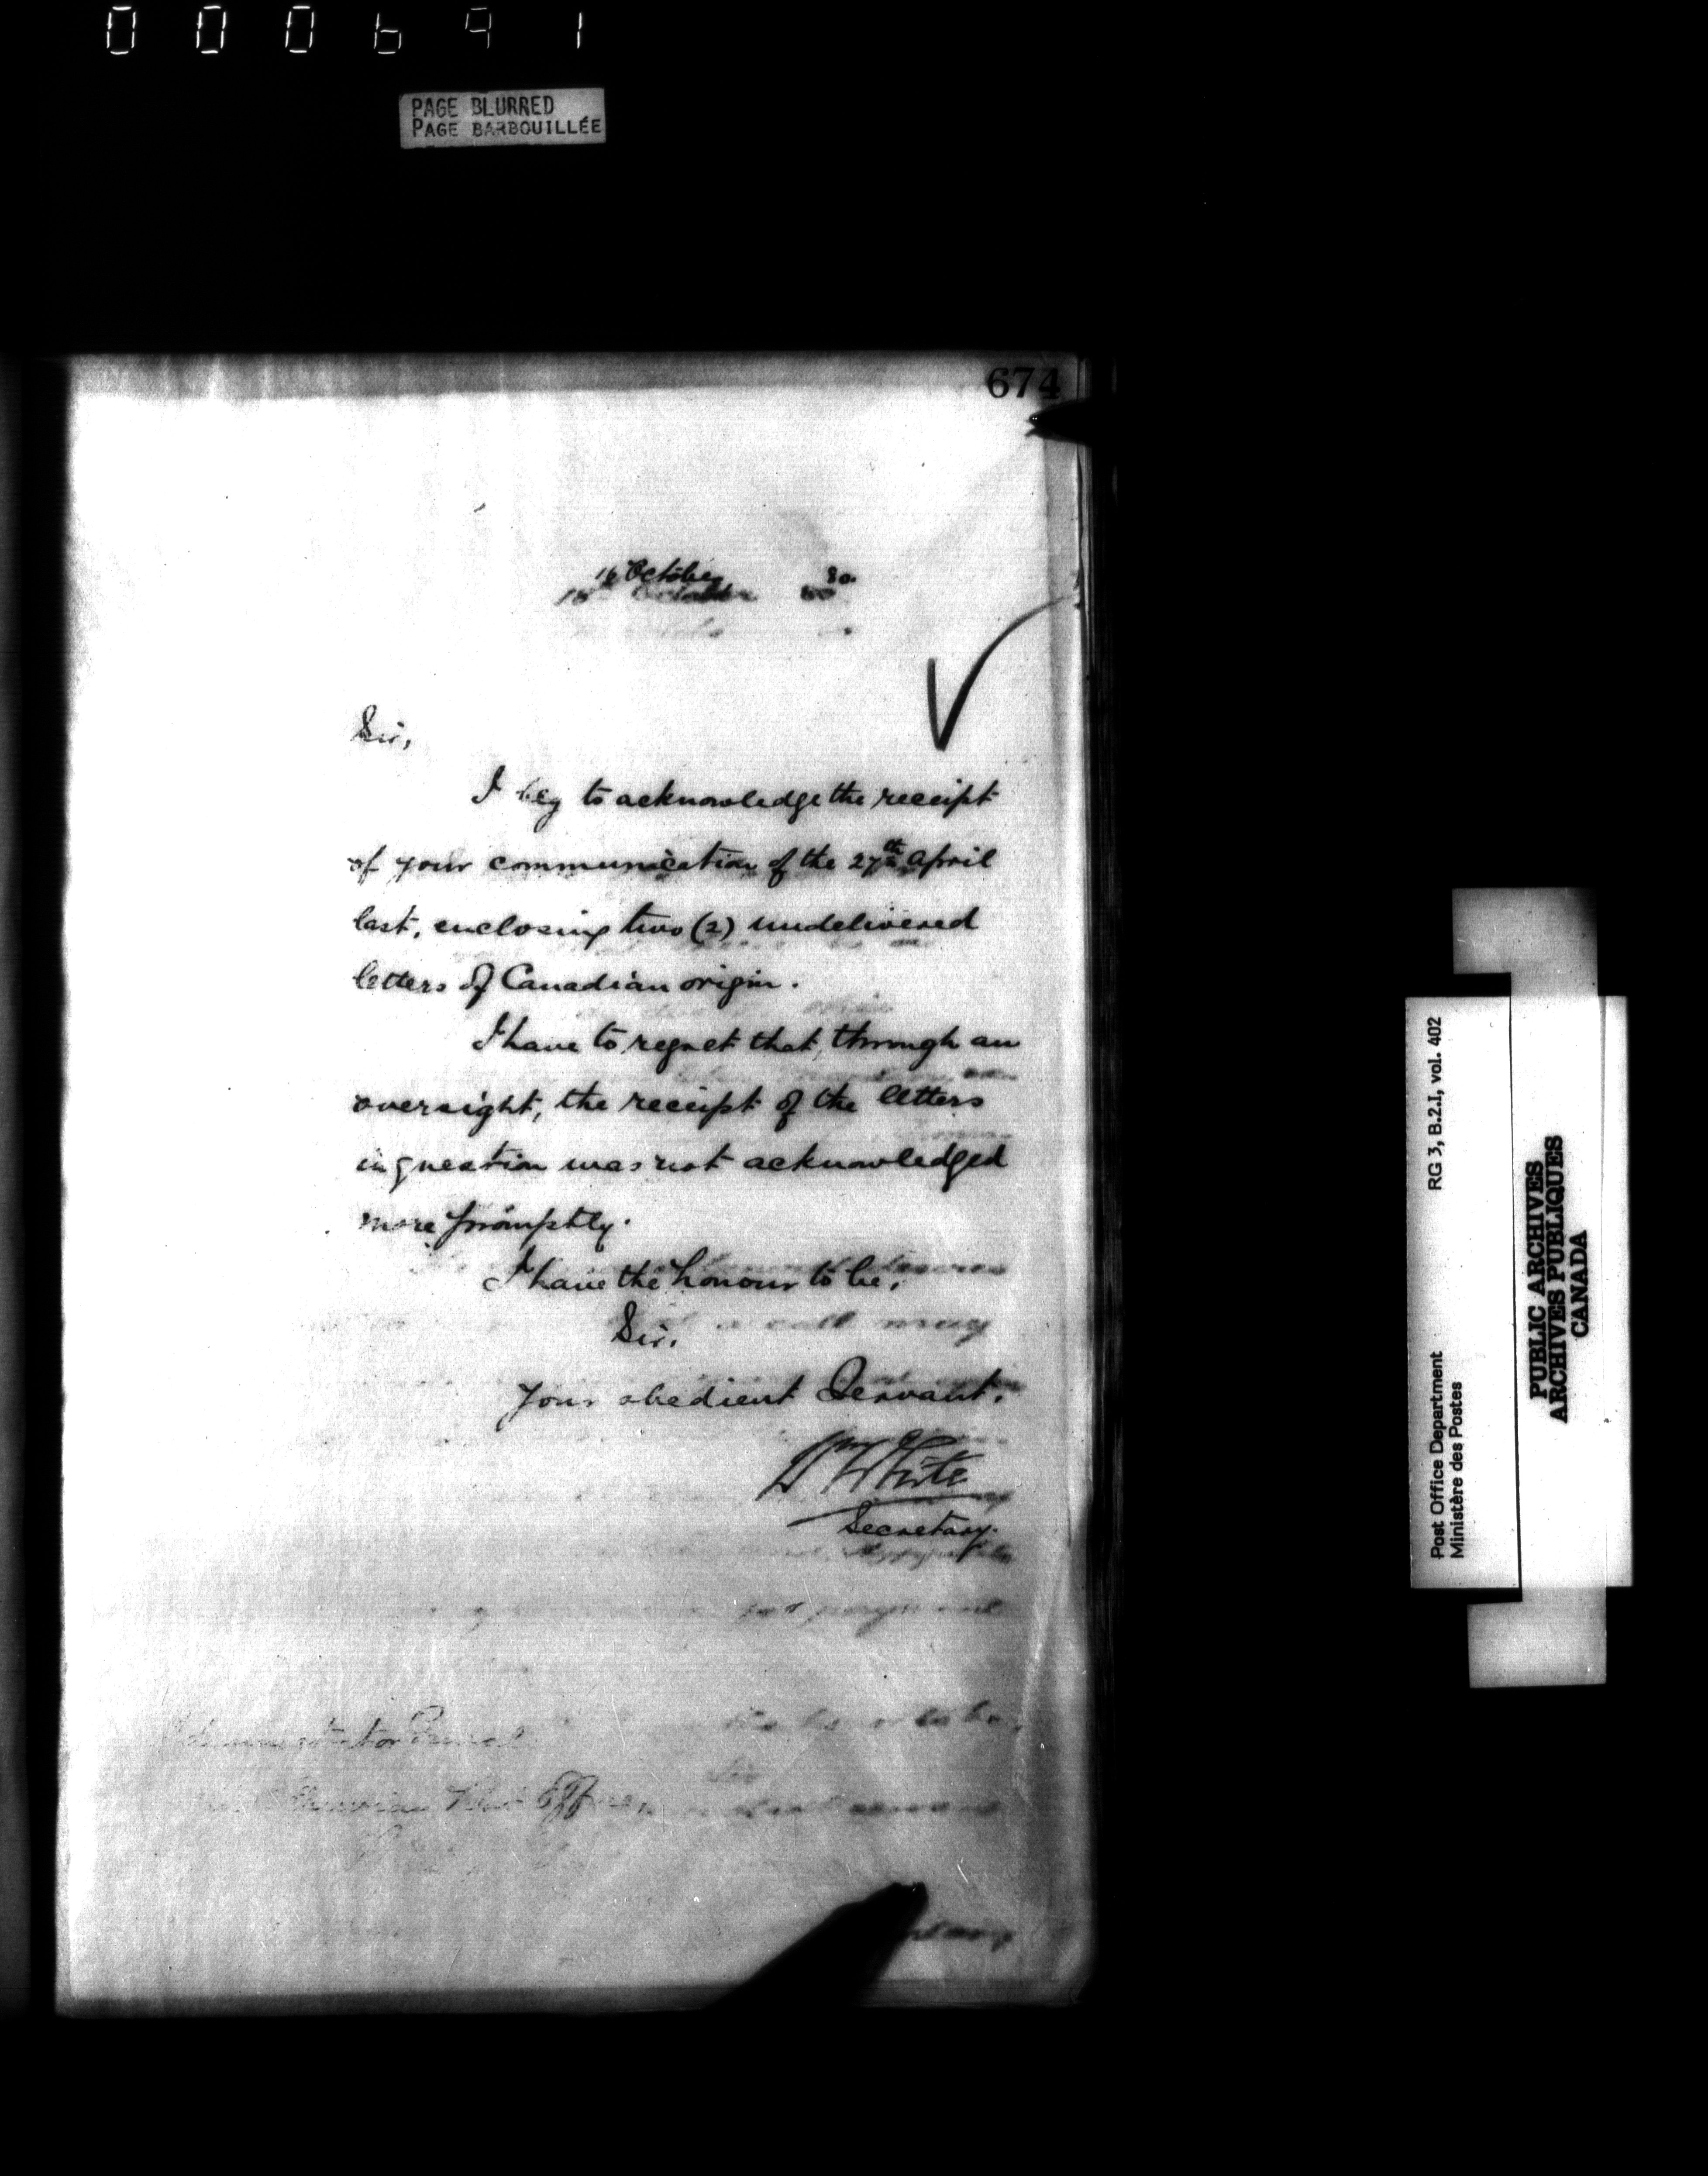 000691
PAGE BLURRED
PAGE BARBOUILLÉE
674
16 October 80.
18th October 80
Sir,
I beg to acknowledge the receipt
of your communication of the 27th April
last, enclosing two (2) undelivered
letters of Canadian origin.
I have to regret that, through an
oversight, the receipt of the letters
in question was not acknowledged
more promptly.
I have the honour to be,
Sir,
Your obedient Servant,
Wm White
Secretary.
for payment
Post Office
RG 3, B.2.I, vol. 402
Post Office Department
Ministère des Postes
PUBLIC ARCHIVES
ARCHIVES PUBLIQUES
CANADA